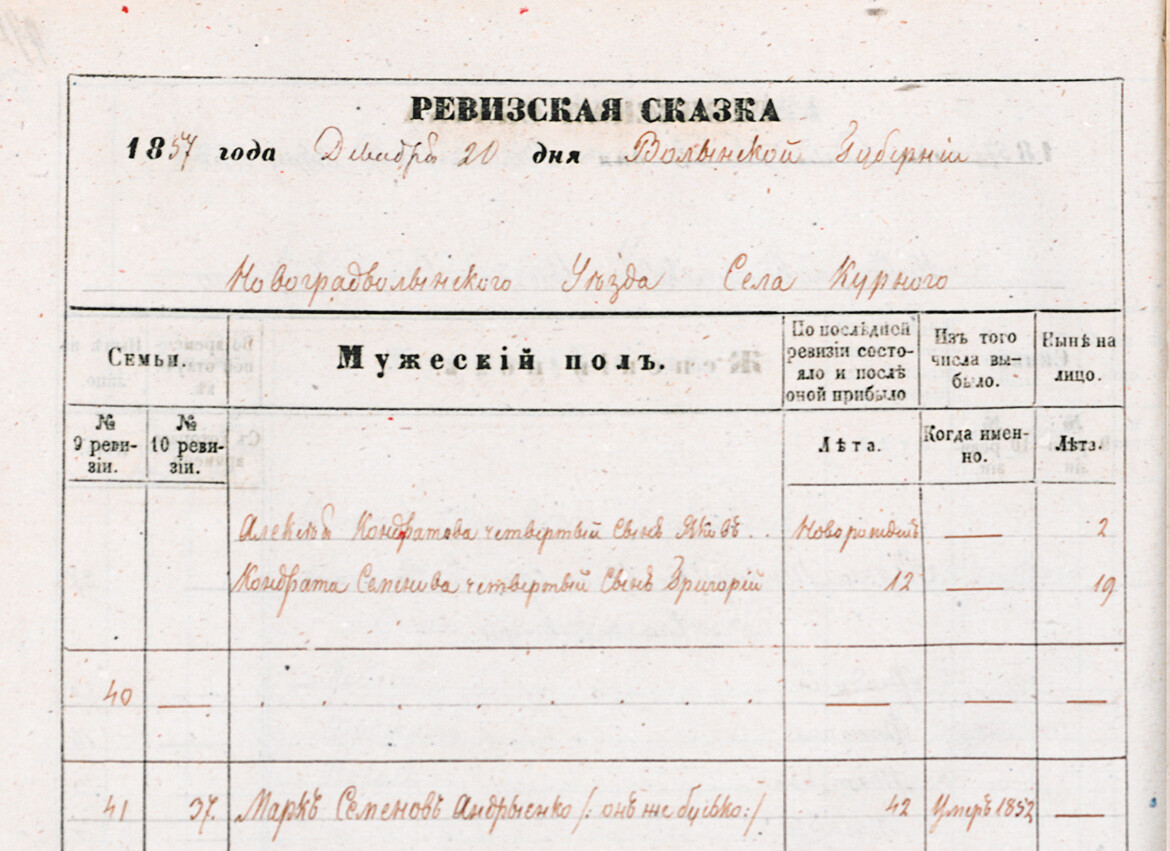 РЕВИЗСКАЯ СКАЗКА
1857 года Декабря 20 дня Волынской Губерніи
Новоградволынского Уѣзда Села Курного
Семьи.
Мужескій полъ.
По послѣдней ревизіи состо-
яло и послѣ
оной прибыло
Изъ того
числа вы-
было.
Нынѣ на
лицо.
№
9 реви-
зіи.
№
10 реви-
зіи.
Лѣта.
Когда имен-
но.
Лѣта.
Алексѣя Кондратова четвертый Сынъ Яковъ . . Новорожден — 2
Кондрата Семенова четвертый Сынъ Григорій 12 — 19
40 — . . . . . . . — — —
41 37. Маркъ Семеновъ Андрыенко /: онъ же булько :/ 42 Умеръ 1852 —